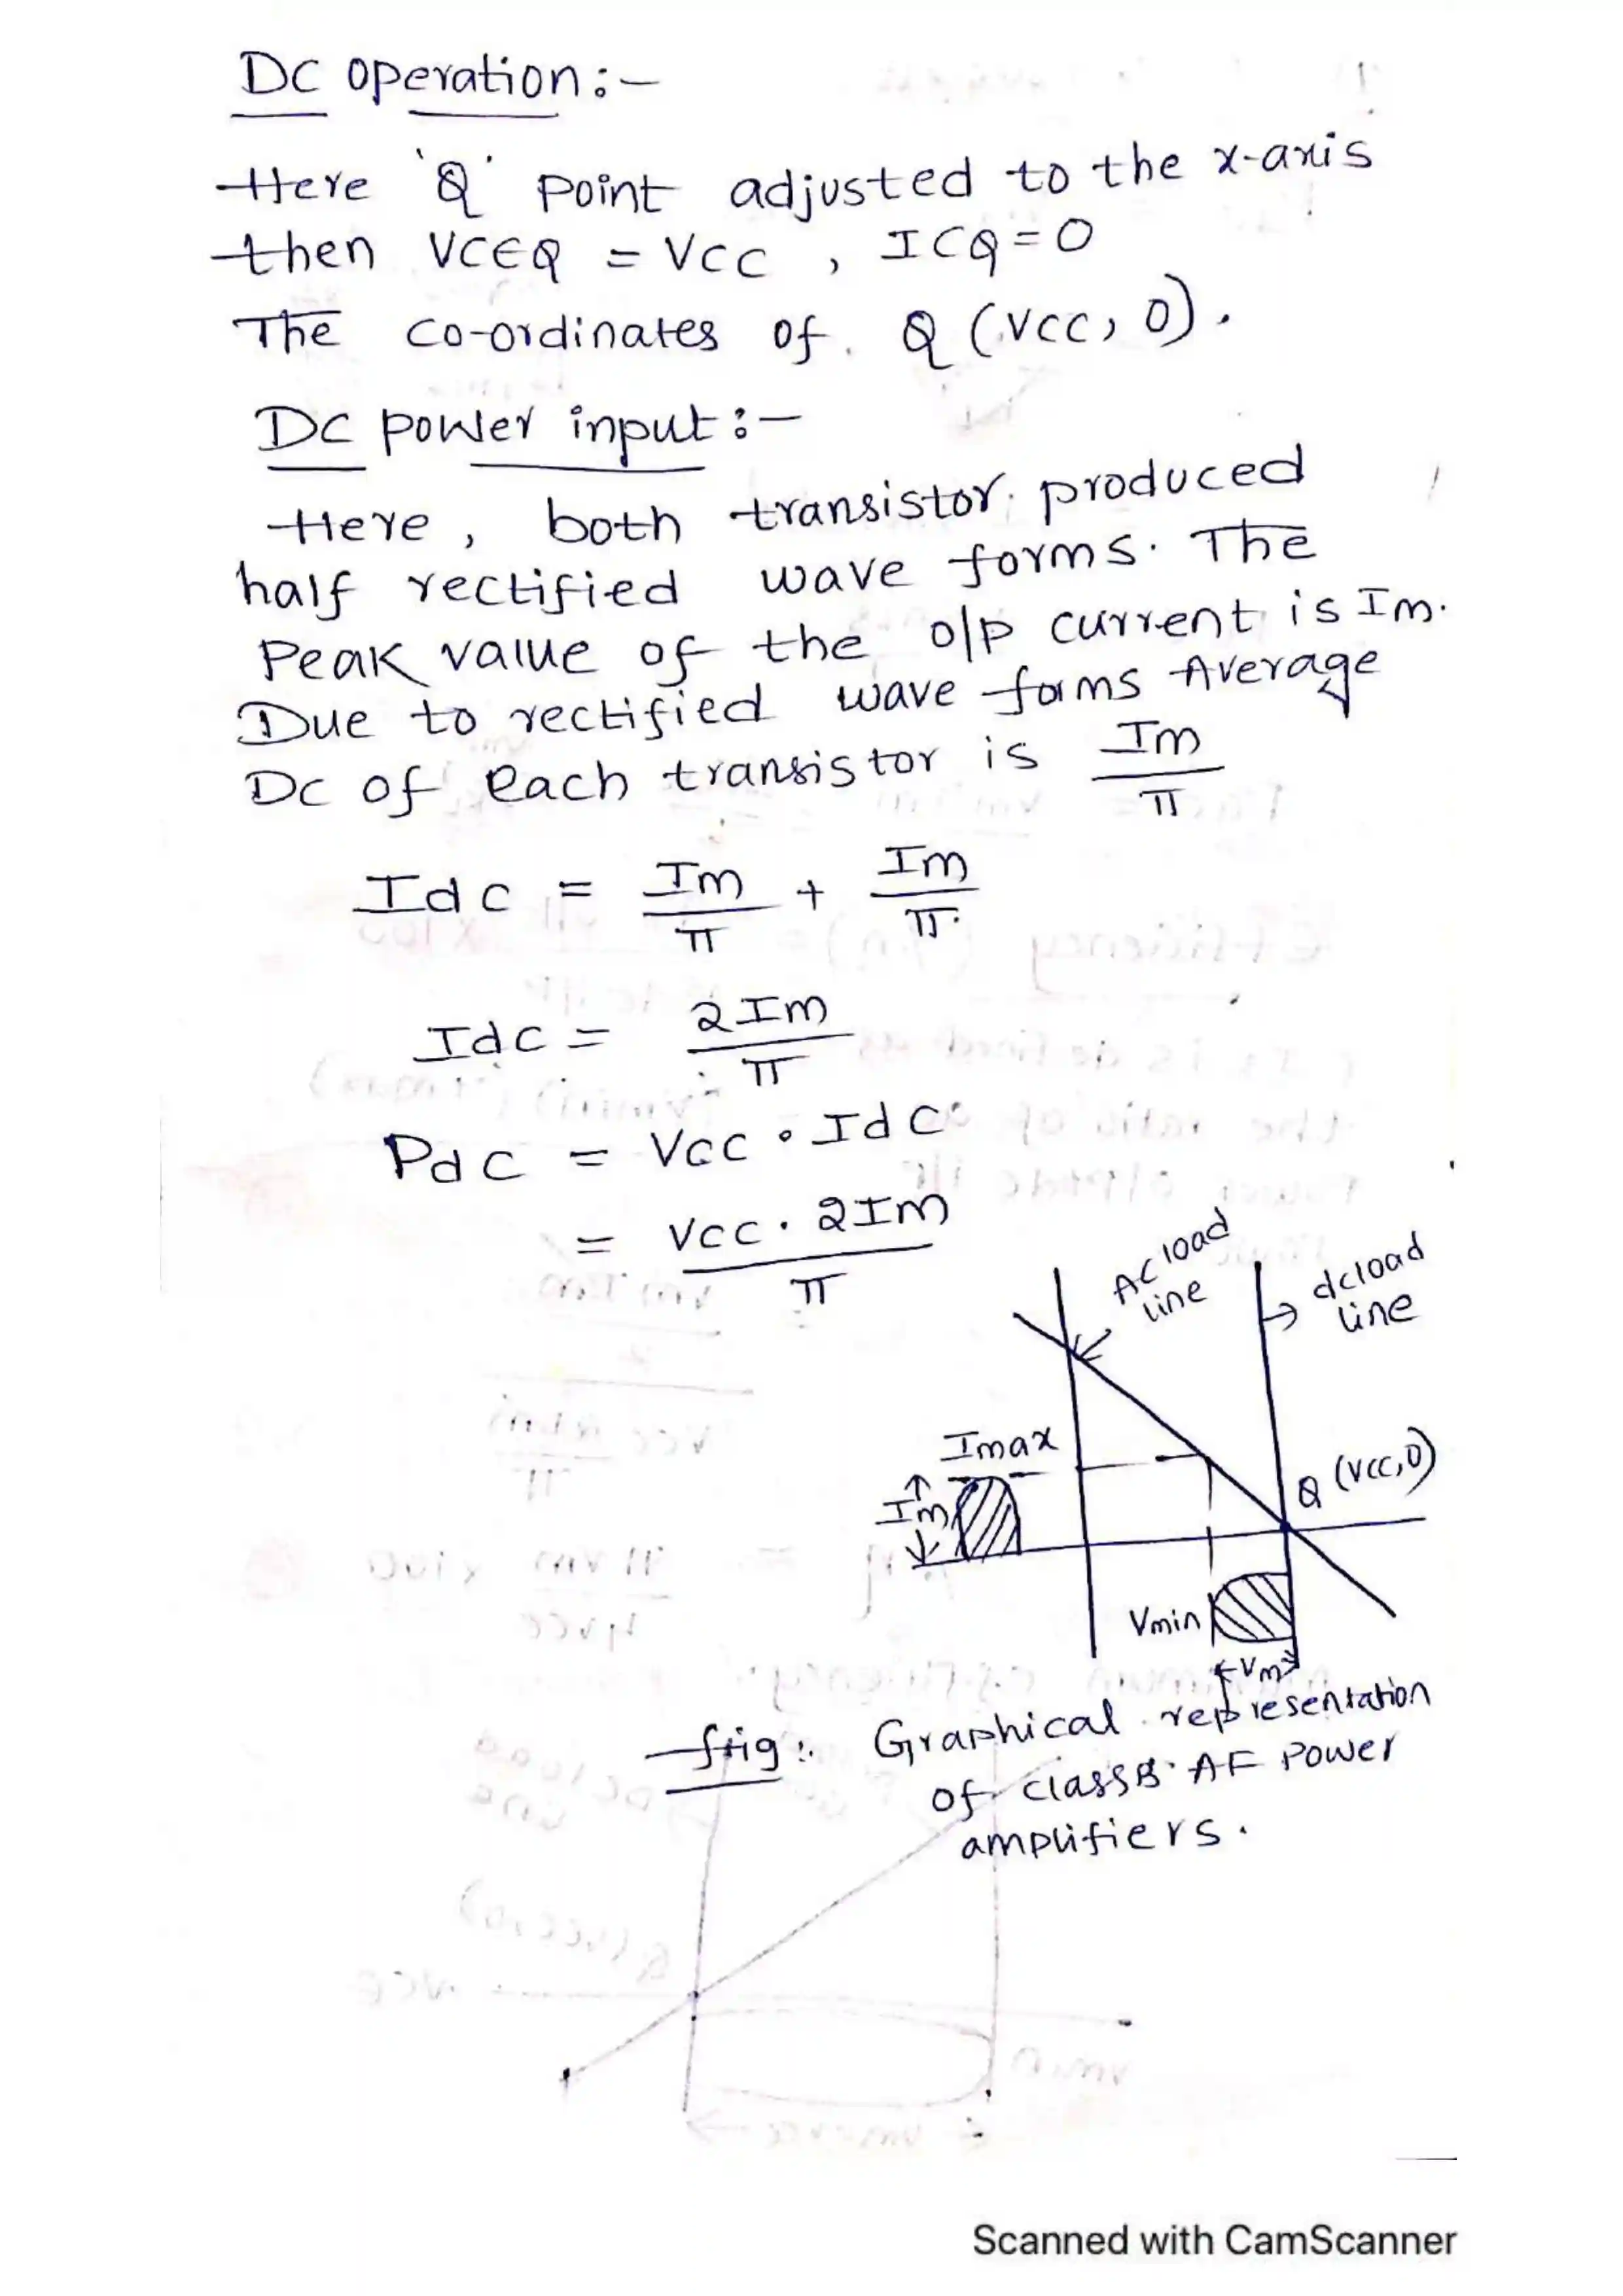 DC operation:-
Here 'Q' point adjusted to the x-axis
then VCEQ = VCC , ICQ = 0
The co-ordinates of. Q (VCC, 0).
DC power input:-
Here, both transistor produced
half rectified wave forms. The
Peak value of the o/p current is Im.
Due to rectified wave forms Average
DC of each transistor is Im/π
Idc = Im/π + Im/π
Idc = 2Im/π
Pdc = VCC . Idc
= VCC . 2Im/π
AC load
line
dc load
line
Imax
Im
Q (VCC, 0)
Vmin
Vm
fig:. Graphical representation
of class B AF Power
amplifiers.
Scanned with CamScanner